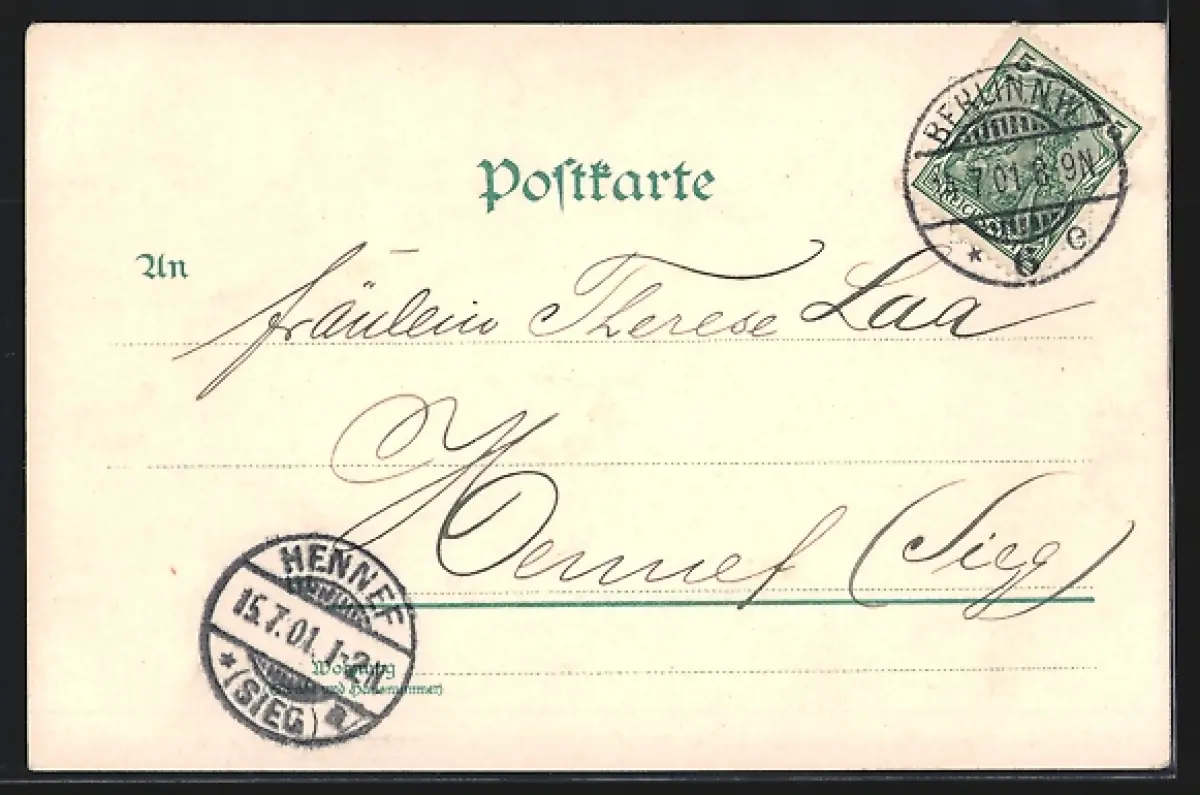 Postkarte
5 5
BERLIN. N.W.
7.01. 8-9N
* 6 e
An
Fräulein Therese Laa
Hennef (Sieg)
HENNEF
15.7.01. 1-2N
* (SIEG) a
Wohnung
(Straße und Hausnummer)